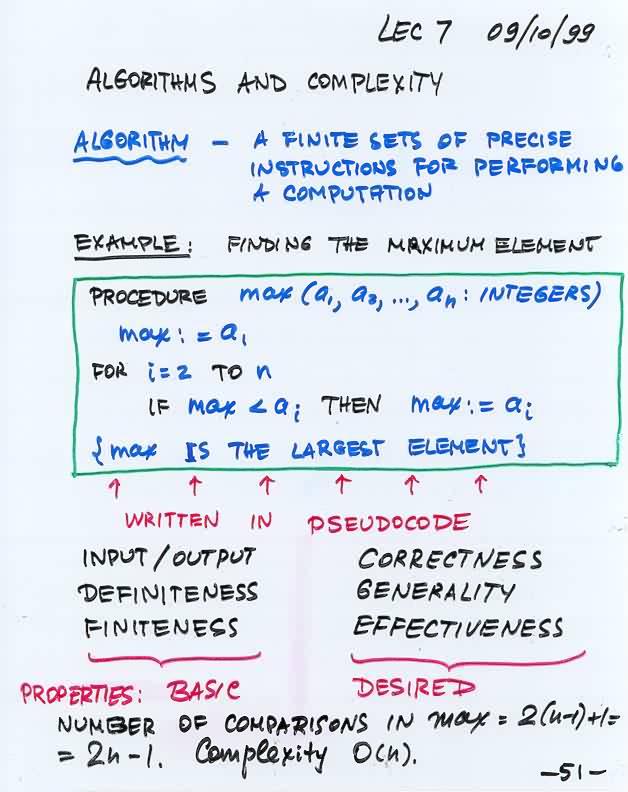 LEC 7 09/10/99
ALGORITHMS AND COMPLEXITY
ALGORITHM – A FINITE SETS OF PRECISE
INSTRUCTIONS FOR PERFORMING
A COMPUTATION
EXAMPLE: FINDING THE MAXIMUM ELEMENT
PROCEDURE max (a₁, a₂, ..., aₙ : INTEGERS)
max := a₁
FOR i=2 TO n
IF max < aᵢ THEN max := aᵢ
{max IS THE LARGEST ELEMENT}
↑ ↑ ↑ ↑ ↑ ↑
WRITTEN IN PSEUDOCODE
INPUT/OUTPUT CORRECTNESS
DEFINITENESS GENERALITY
FINITENESS EFFECTIVENESS
PROPERTIES: BASIC DESIRED
NUMBER OF COMPARISONS IN max = 2(n-1)+1=
= 2n-1. Complexity O(n).
–51–